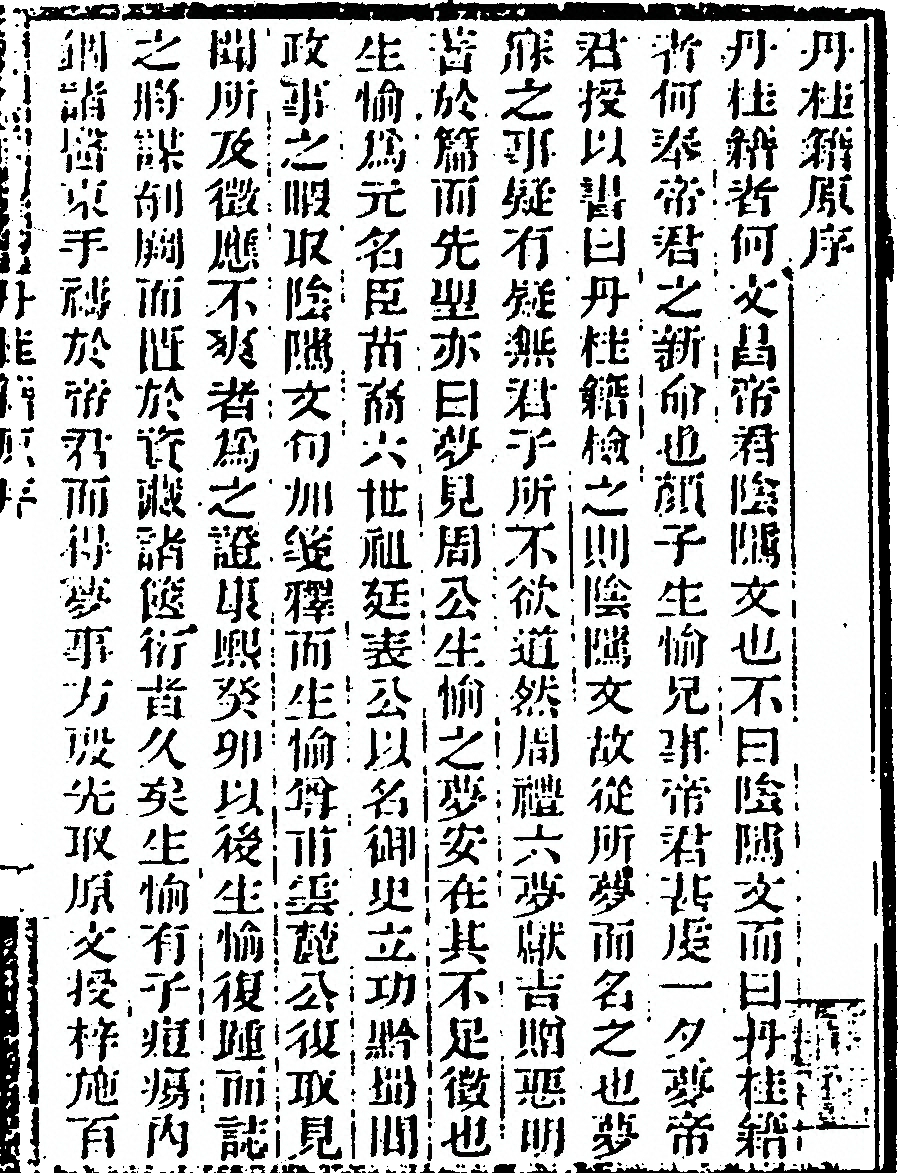 丹桂籍原序
丹桂籍者何文昌帝君陰隲文也不曰陰隲文而曰丹桂籍
者何奉帝君之新命也顏子生愉兄事帝君甚虔一夕夢帝
君授以書曰丹桂籍檢之則陰隲文故從所夢而名之也夢
寐之事疑有疑無君子所不欲道然周禮六夢獻吉贈惡明
著於篇而先聖亦曰夢見周公生愉之夢安在其不足徵也
生愉為元名臣苗裔六世祖廷表公以名御史立功黔蜀間
政事之暇取陰隲文句加箋釋而生愉尊甫雲麓公復取見
聞所及徵應不爽者為之證康熙癸卯以後生愉復踵而誌
之將謀剞劂而匱於資藏諸篋衍者久矣生愉有子痘瘍內
錮諸醫束手禱於帝君而得夢事方毀先取原文授梓施百
丹桂籍原序